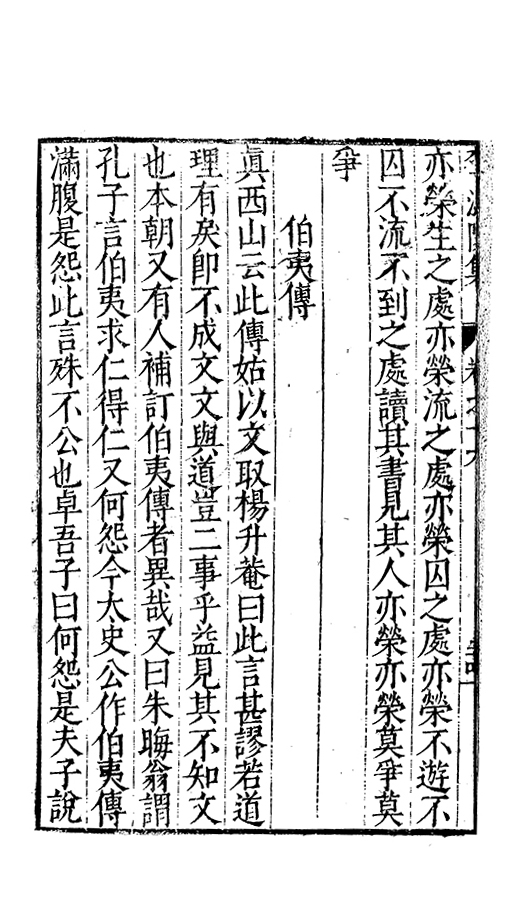 亦榮生之處亦榮流之處亦榮囚之處亦榮不遊不
囚不流不到之處讀其書見其人亦榮亦榮莫爭莫
爭
伯夷傳
眞西山云此傳姑以文取楊升菴曰此言甚謬若道
理有矣卽不成文文與道豈二事乎益見其不知文
也本朝又有人補訂伯夷傳者異哉又曰朱晦翁謂
孔子言伯夷求仁得仁又何怨今太史公作伯夷傳
滿腹是怨此言殊不公也卓吾子曰何怨是夫子說